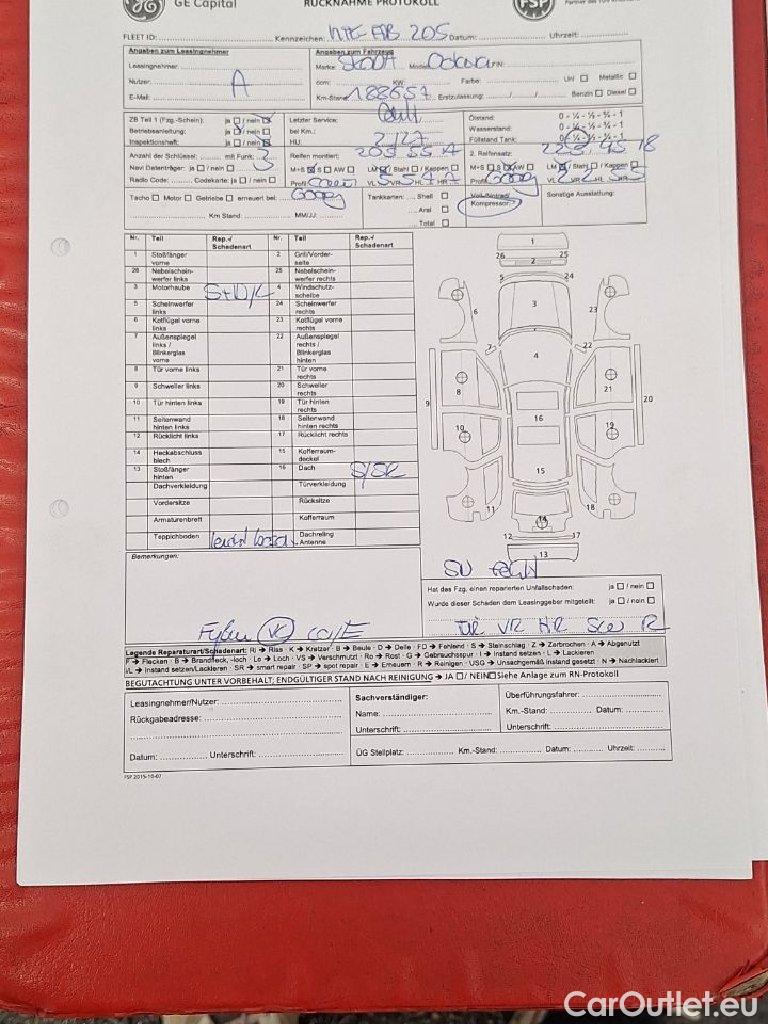 GE Capital
RÜCKNAHME PROTOKOLL
FSP
FLEET ID: Kennzeichen: 205 Datum: Uhrzeit:
Angaben zum Leasingnehmer
Leasingnehmer:
Nutzer: A
E-Mail:
Angaben zum Fahrzeug
Marke: SKODA Model: Octavia FIN:
ccm: KW: Farbe: UNI Metallic
Km-Stand: 188657 Erstzulassung: / / Benzin Diesel
ZB Teil 1 (Fzg.-Schein): ja / nein
Betriebsanleitung: ja / nein
Inspektionsheft: ja / nein
Letzter Service:
bei Km.:
HU: 2/27
Ölstand: 0 - ¼ - ½ - ¾ - 1
Wasserstand: 0 - ¼ - ½ - ¾ - 1
Füllstand Tank: 0 - ¼ - ½ - ¾ - 1
Anzahl der Schlüssel: mit Funk: 3
Navi Datenträger: ja / nein
Radio Code: Codekarte: ja / nein
Reifen montiert: 205 55 17
M+S S AW LM / Stahl / Kappen
Profil VL 5 VR 5 HL 7 HR 7
2. Reifensatz: 225 / 45 18
M+S S AW LM / Stahl / Kappen
Profil VL VR HL HR
Tacho Motor Getriebe erneuert bei:
Km Stand: MM/JJ:
Tankkarten: Shell
Aral
Total
Voll-/Notrad/
Kompressor:
Sonstige Ausstattung:
Nr. Teil Rep.-/ Schadenart Nr. Teil Rep.-/ Schadenart
1 Stoßfänger vorne 2 Grill/Vorderseite
26 Nebelscheinwerfer links 25 Nebelscheinwerfer rechts
3 Motorhaube 4 Windschutzscheibe
5 Scheinwerfer links 24 Scheinwerfer rechts
6 Kotflügel vorne links 23 Kotflügel vorne rechts
7 Außenspiegel links / Blinkerglas vorne 22 Außenspiegel rechts / Blinkerglas hinten
8 Tür vorne links 21 Tür vorne rechts
9 Schweller links 20 Schweller rechts
10 Tür hinten links 19 Tür hinten rechts
11 Seitenwand hinten links 18 Seitenwand hinten rechts
12 Rücklicht links 17 Rücklicht rechts
14 Heckabschlussblech 15 Kofferraumdeckel
13 Stoßfänger hinten 16 Dach S/SR
Dachverkleidung Türverkleidung
Vordersitze Rücksitze
Armaturenbrett Kofferraum
Teppichboden Dachreling Antenne
1
26 25
2
5 24
3
6 23
7 22
4
8 21
9 20
16
10 19
15
11 18
14
12 17
13
Bemerkungen:
Hat das Fzg. einen reparierten Unfallschaden: ja / nein
Wurde dieser Schaden dem Leasinggeber mitgeteilt: ja / nein
Tür VR HR R
Legende Reparaturart/Schadenart: Ri → Riss · K → Kratzer · B → Beule · D → Delle · FD → Fehlend · S → Steinschlag · Z → Zerbrochen · A → Abgenutzt
F → Flecken · B → Brandfleck, -loch · Lo → Loch · VS → Verschmutzt · Ro → Rost · G → Gebrauchsspur · I → Instand setzen · L → Lackieren
I/L → Instand setzen/Lackieren · SR → smart repair · SP → spot repair · E → Erneuern · R → Reinigen · USG → Unsachgemäß instand gesetzt · N → Nachlackiert
BEGUTACHTUNG UNTER VORBEHALT; ENDGÜLTIGER STAND NACH REINIGUNG → JA / NEIN Siehe Anlage zum RN-Protokoll
Leasingnehmer/Nutzer:
Rückgabeadresse:
Datum: Unterschrift:
Sachverständiger:
Name:
Unterschrift:
Überführungsfahrer:
Km.-Stand: Datum:
Unterschrift:
ÜG Stellplatz: Km.-Stand: Datum: Uhrzeit:
FSP 2015-10-07
CarOutlet.eu